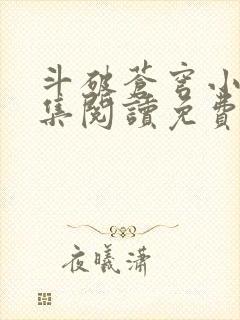 斗破蒼穹小
集閱讀免費
夜曦瀟